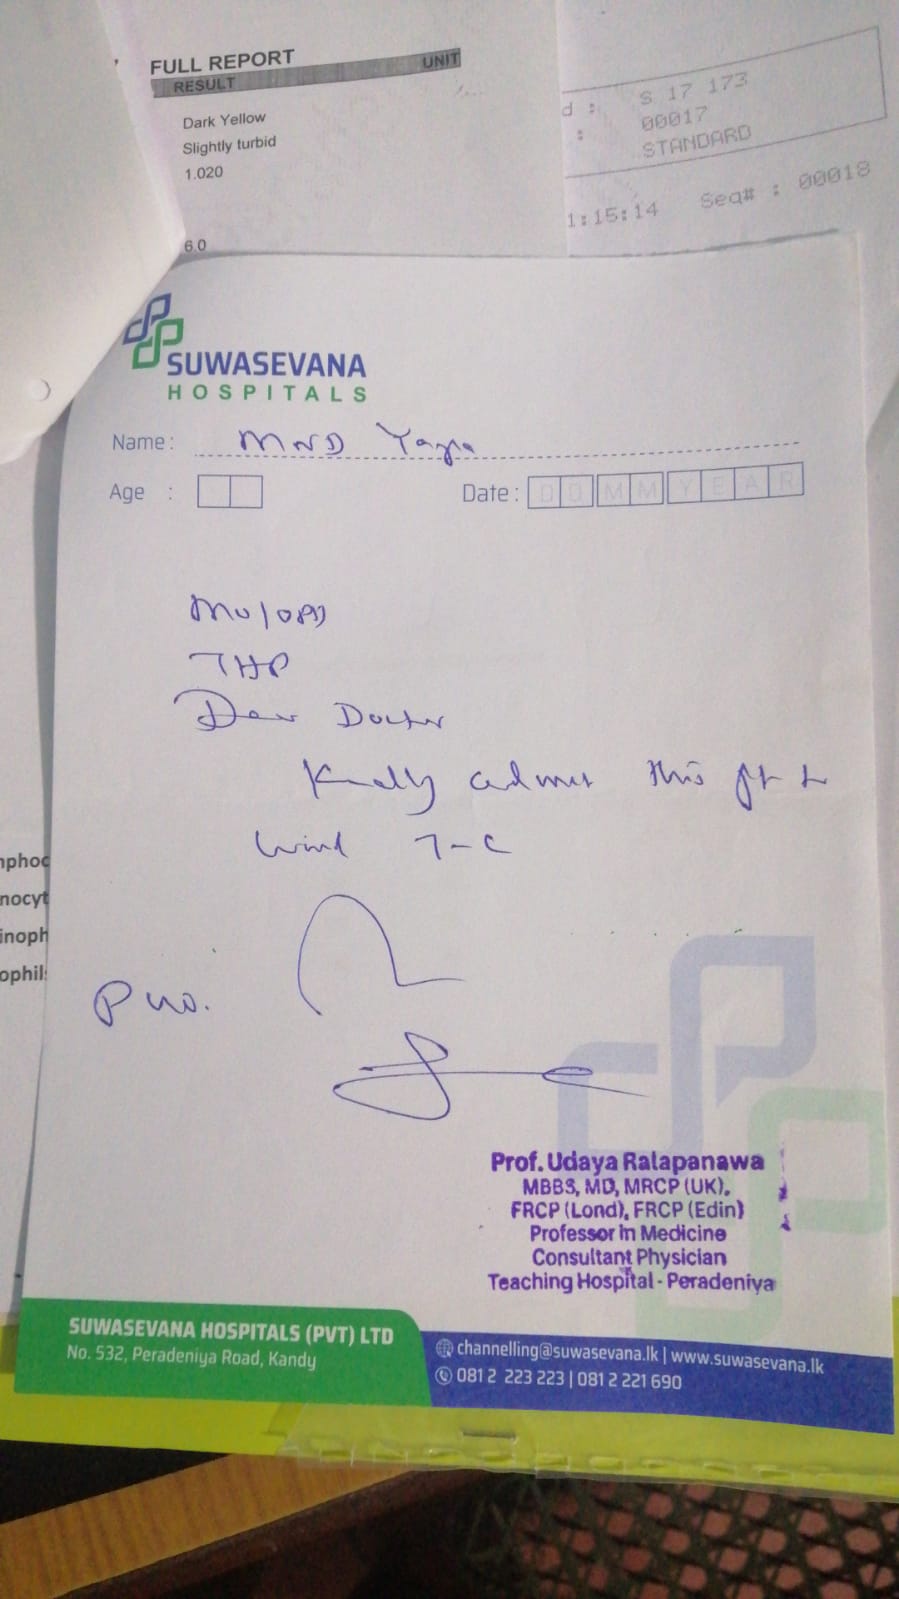 FULL REPORT
RESULT UNIT
Dark Yellow
Slightly turbid
1.020
6.0
d : S 17 173
: 00017
STANDARD
1:15:14 Seq# : 00018
SUWASEVANA
HOSPITALS
Name : MND
Age :
Date : D D M M Y E A R
THP
Dear Doctor
Kindly admit this pt to
Ward 7-C
nphoc
nocyt
inoph
ophil
Prof. Udaya Ralapanawa
MBBS, MD, MRCP (UK),
FRCP (Lond), FRCP (Edin)
Professor in Medicine
Consultant Physician
Teaching Hospital - Peradeniya
SUWASEVANA HOSPITALS (PVT) LTD
No. 532, Peradeniya Road, Kandy
channelling@suwasevana.lk | www.suwasevana.lk
081 2 223 223 | 081 2 221 690